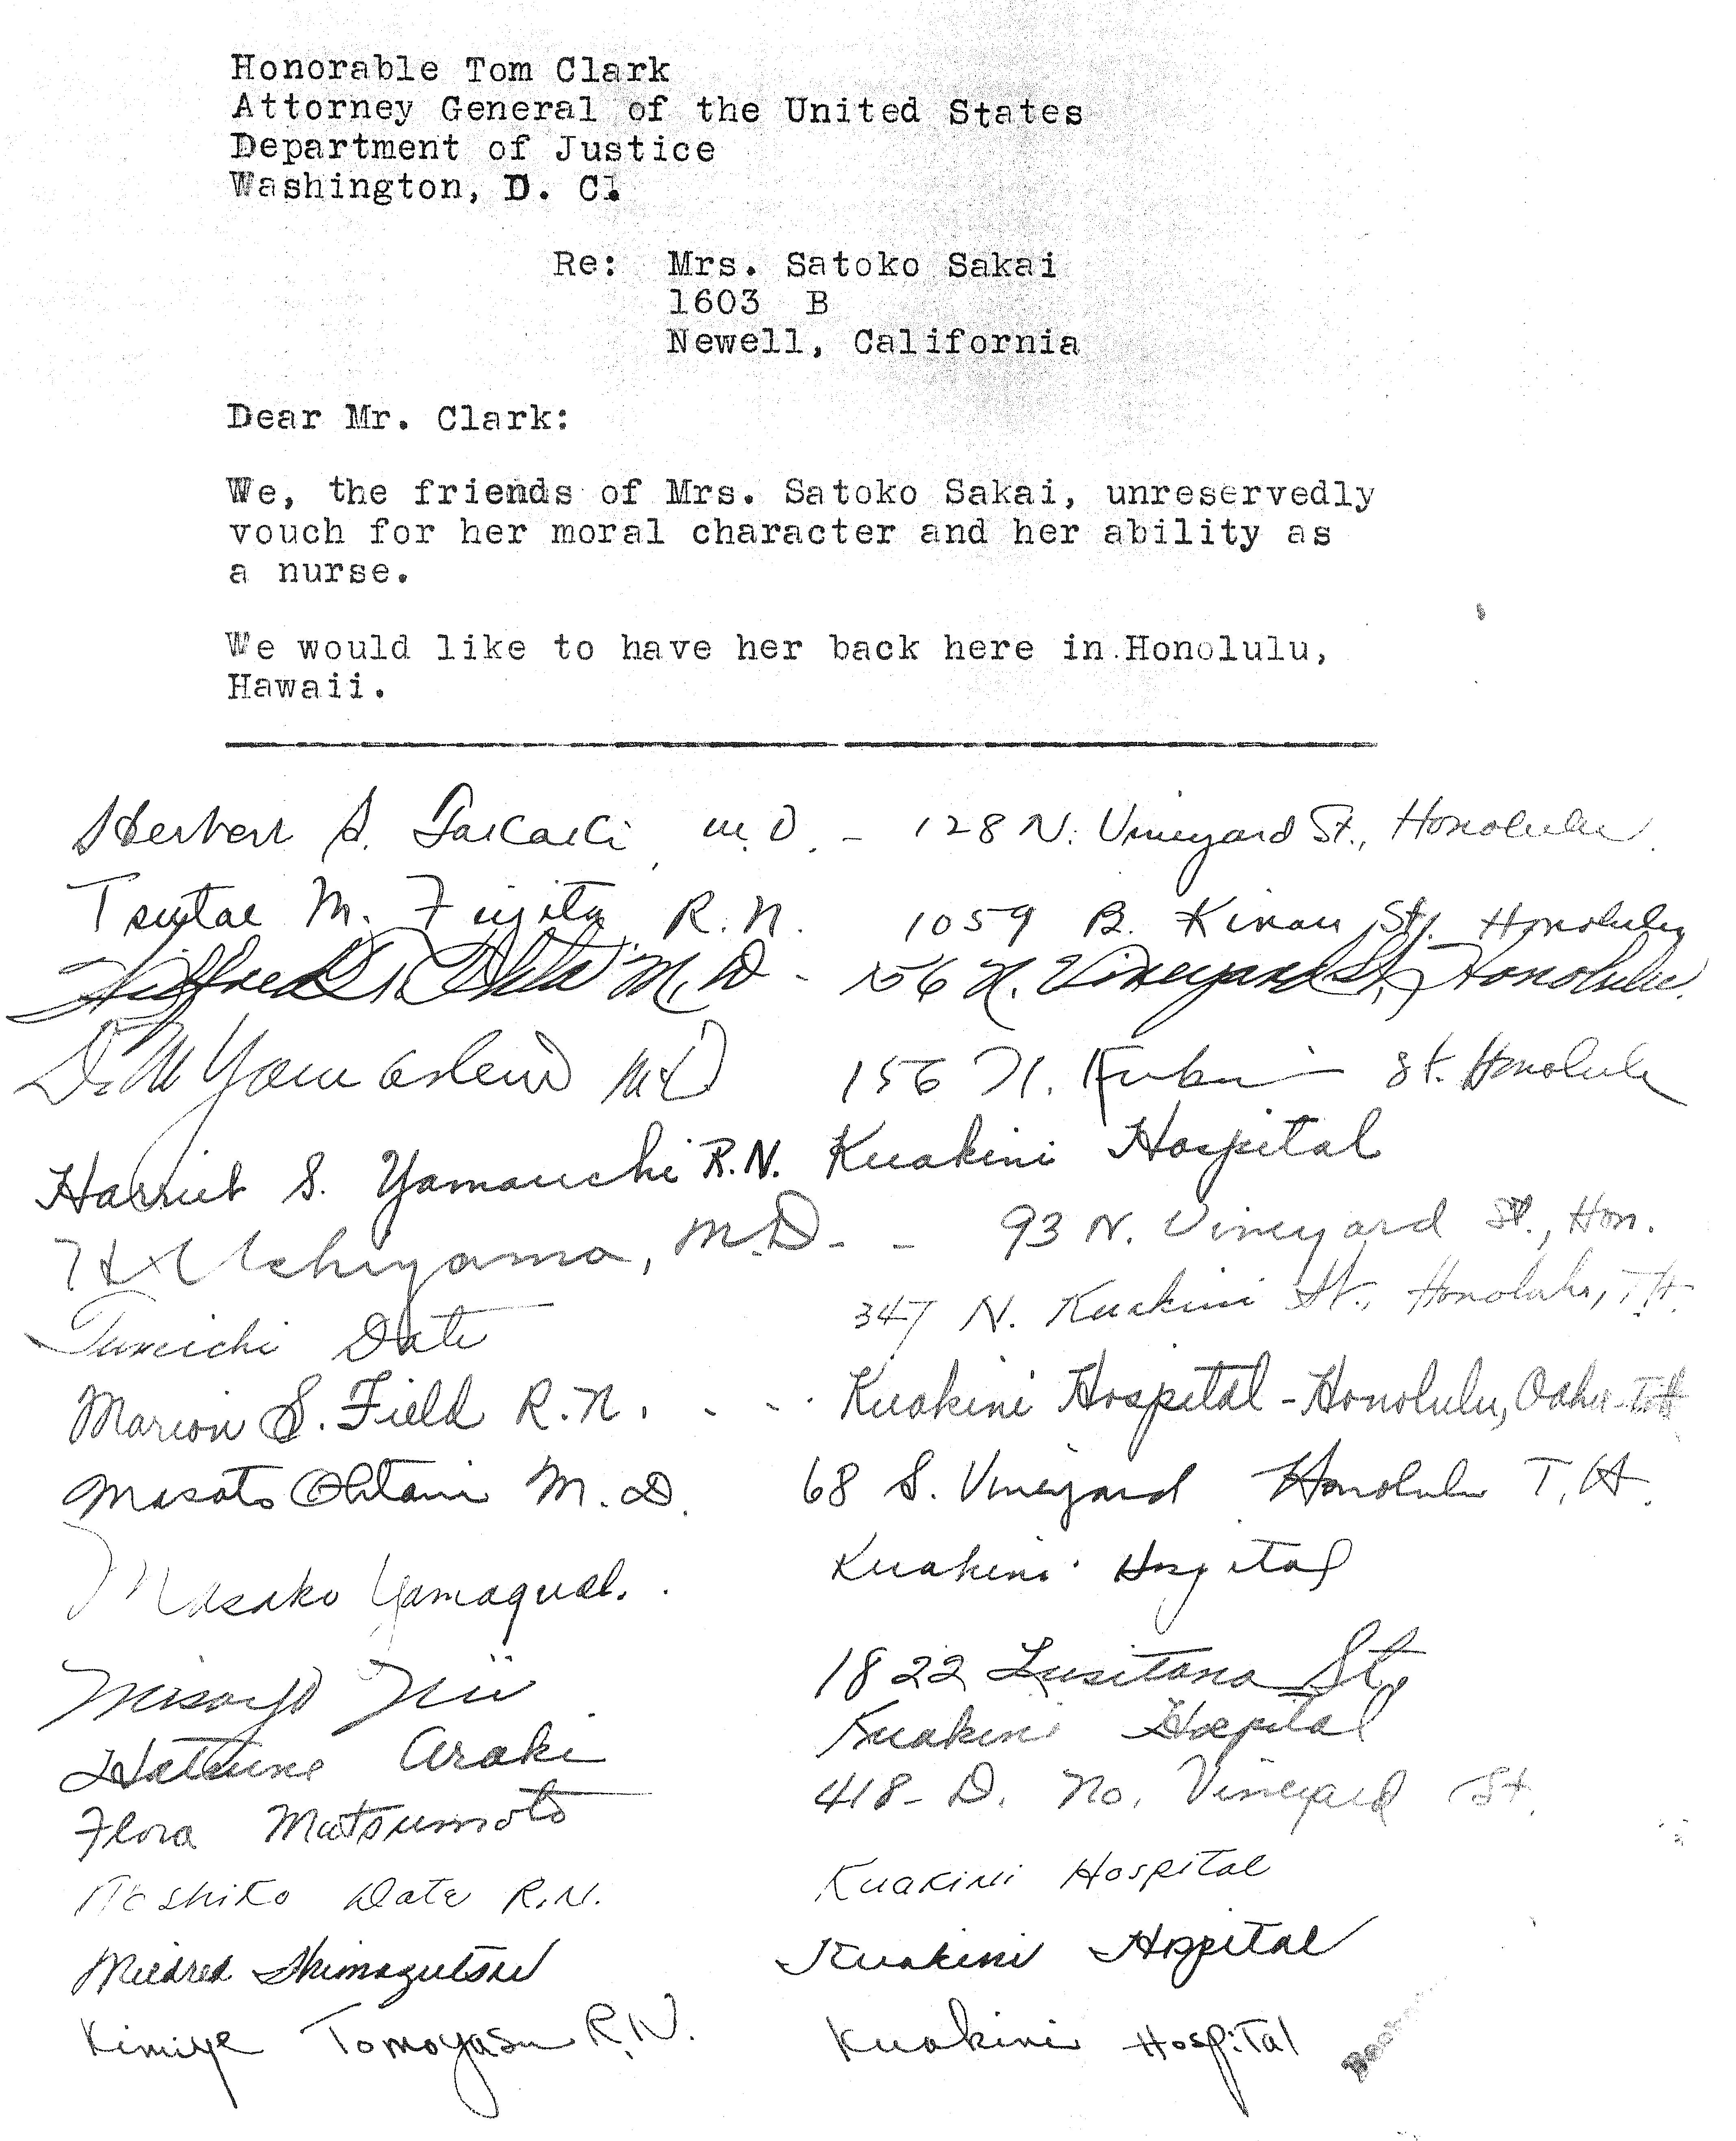 Honorable Tom Clark
Attorney General of the United States
Department of Justice
Washington, D. C.
Re: Mrs. Satoko Sakai
1603 B
Newell, California
Dear Mr. Clark:
We, the friends of Mrs. Satoko Sakai, unreservedly
vouch for her moral character and her ability as
a nurse.
We would like to have her back here in Honolulu,
Hawaii.
Herbert S. Takaki M.D. - 128 N. Vineyard St., Honolulu.
Tsutae M. Fujita, R.N. 1059 B. Kinau St. Honolulu
M.D. - 156 N. Vineyard St., Honolulu.
Dr. M M.D 156 N. St. Honolulu
Harriet S. Yamauchi R.N. Kuakini Hospital
Uchiyama, M.D. - - 93 N. Vineyard St., Hon.
Date 347 N. Kuakini St., Honolulu, T.H.
Marion S. Field R.N. - - . Kuakini Hospital - Honolulu, Oahu - T.H
Masato Ohtani M.D. 68 S. Vineyard Honolulu T.H.
Masako Kuakini Hospital
Misayo Nii 1822 Lusitana St.
Hatsune Araki Kuakini Hospital
Flora Matsumoto 418-D. No. Vineyard St.
Date R.N. Kuakini Hospital
Mildred Shimazutsu Kuakini Hospital
Kimiye Tomoyasu R.N. Kuakini Hospital